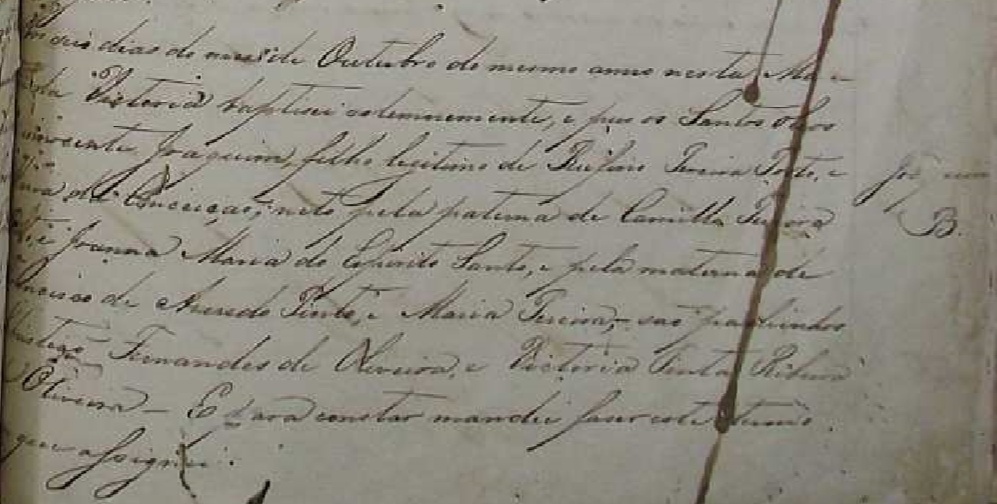 seis dias do mes de Outubro do mesmo anno nesta Ma-
da Victoria baptisei solemnemente, e pus os Santos Oleos
innocente Joaquim, filho legitimo de Rufino Pereira Pinto, e
da Conceição; neto pela paterna de Camillo Pereira
Joanna Maria do Espirito Santo, e pela materna de
de Azevedo Pinto, e Maria Pereira, - são padrinhos
Fernandes de Oliveira, e Victoria Pinta Ribeira
Oliveira - E para constar mandei faser este termo
que assignei.
B.